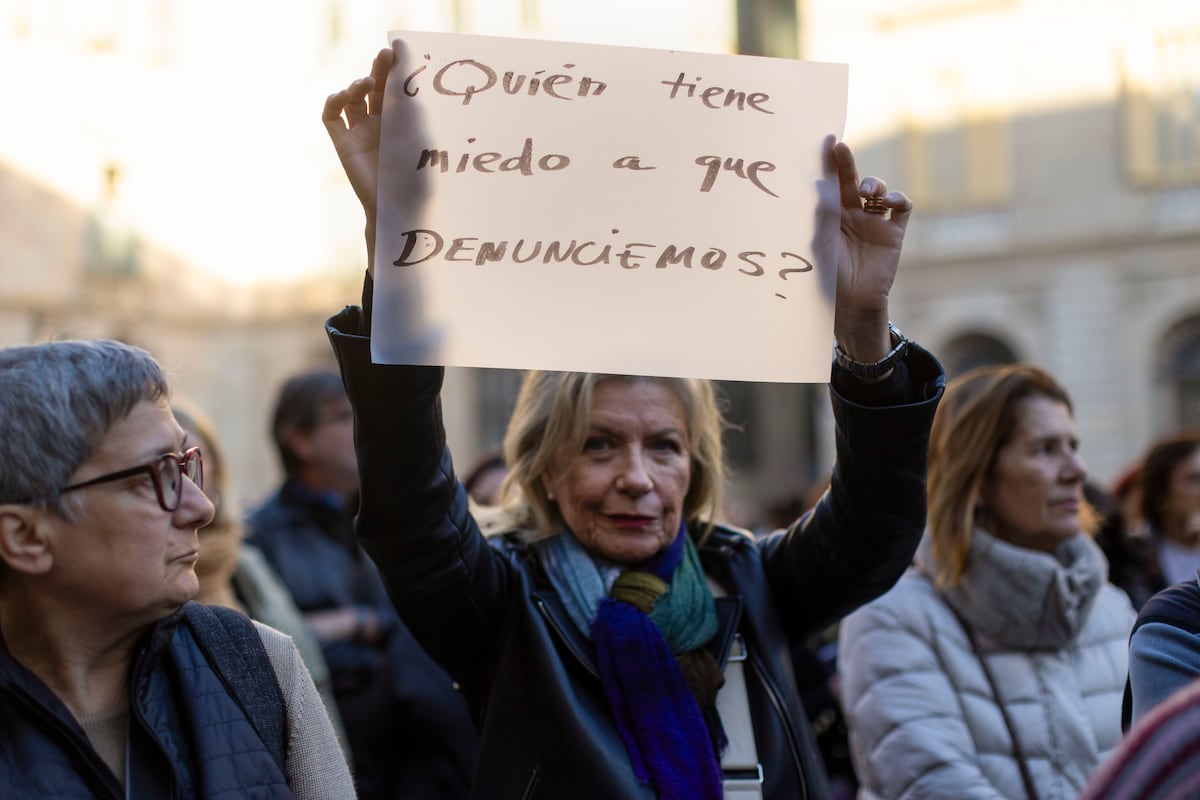 ¿Quién tiene
miedo a que
DENUNCIEMOS?